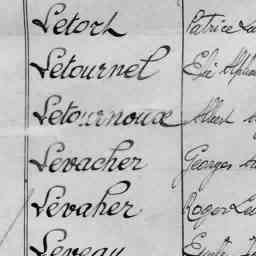 Letort Patrice
Letournel
Letournoux Albert
Levacher Georges
Lévaher Roger
Leveau